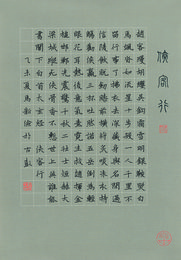 俠客行
趙客縵胡纓吳鉤霜雪明銀鞍照白
馬颯沓如流星十步殺一人千里不
留行事了拂衣去深藏身與名閑過
信陵飲脫劍膝前橫將炙啖朱亥持
觴勸侯嬴三杯吐然諾五嶽倒為輕
眼花耳熱後意氣素霓生救趙揮金
槌邯鄲先震驚千秋二壯士烜赫大
梁城縱死俠骨香不慚世上英誰能
書閣下白首太玄經 俠客行
乙未夏馬新於古彭